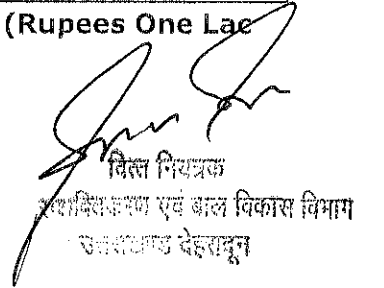 (Rupees One Lac
वित्त नियंत्रक
एवं बाल विकास विभाग
उत्तराखण्ड देहरादून